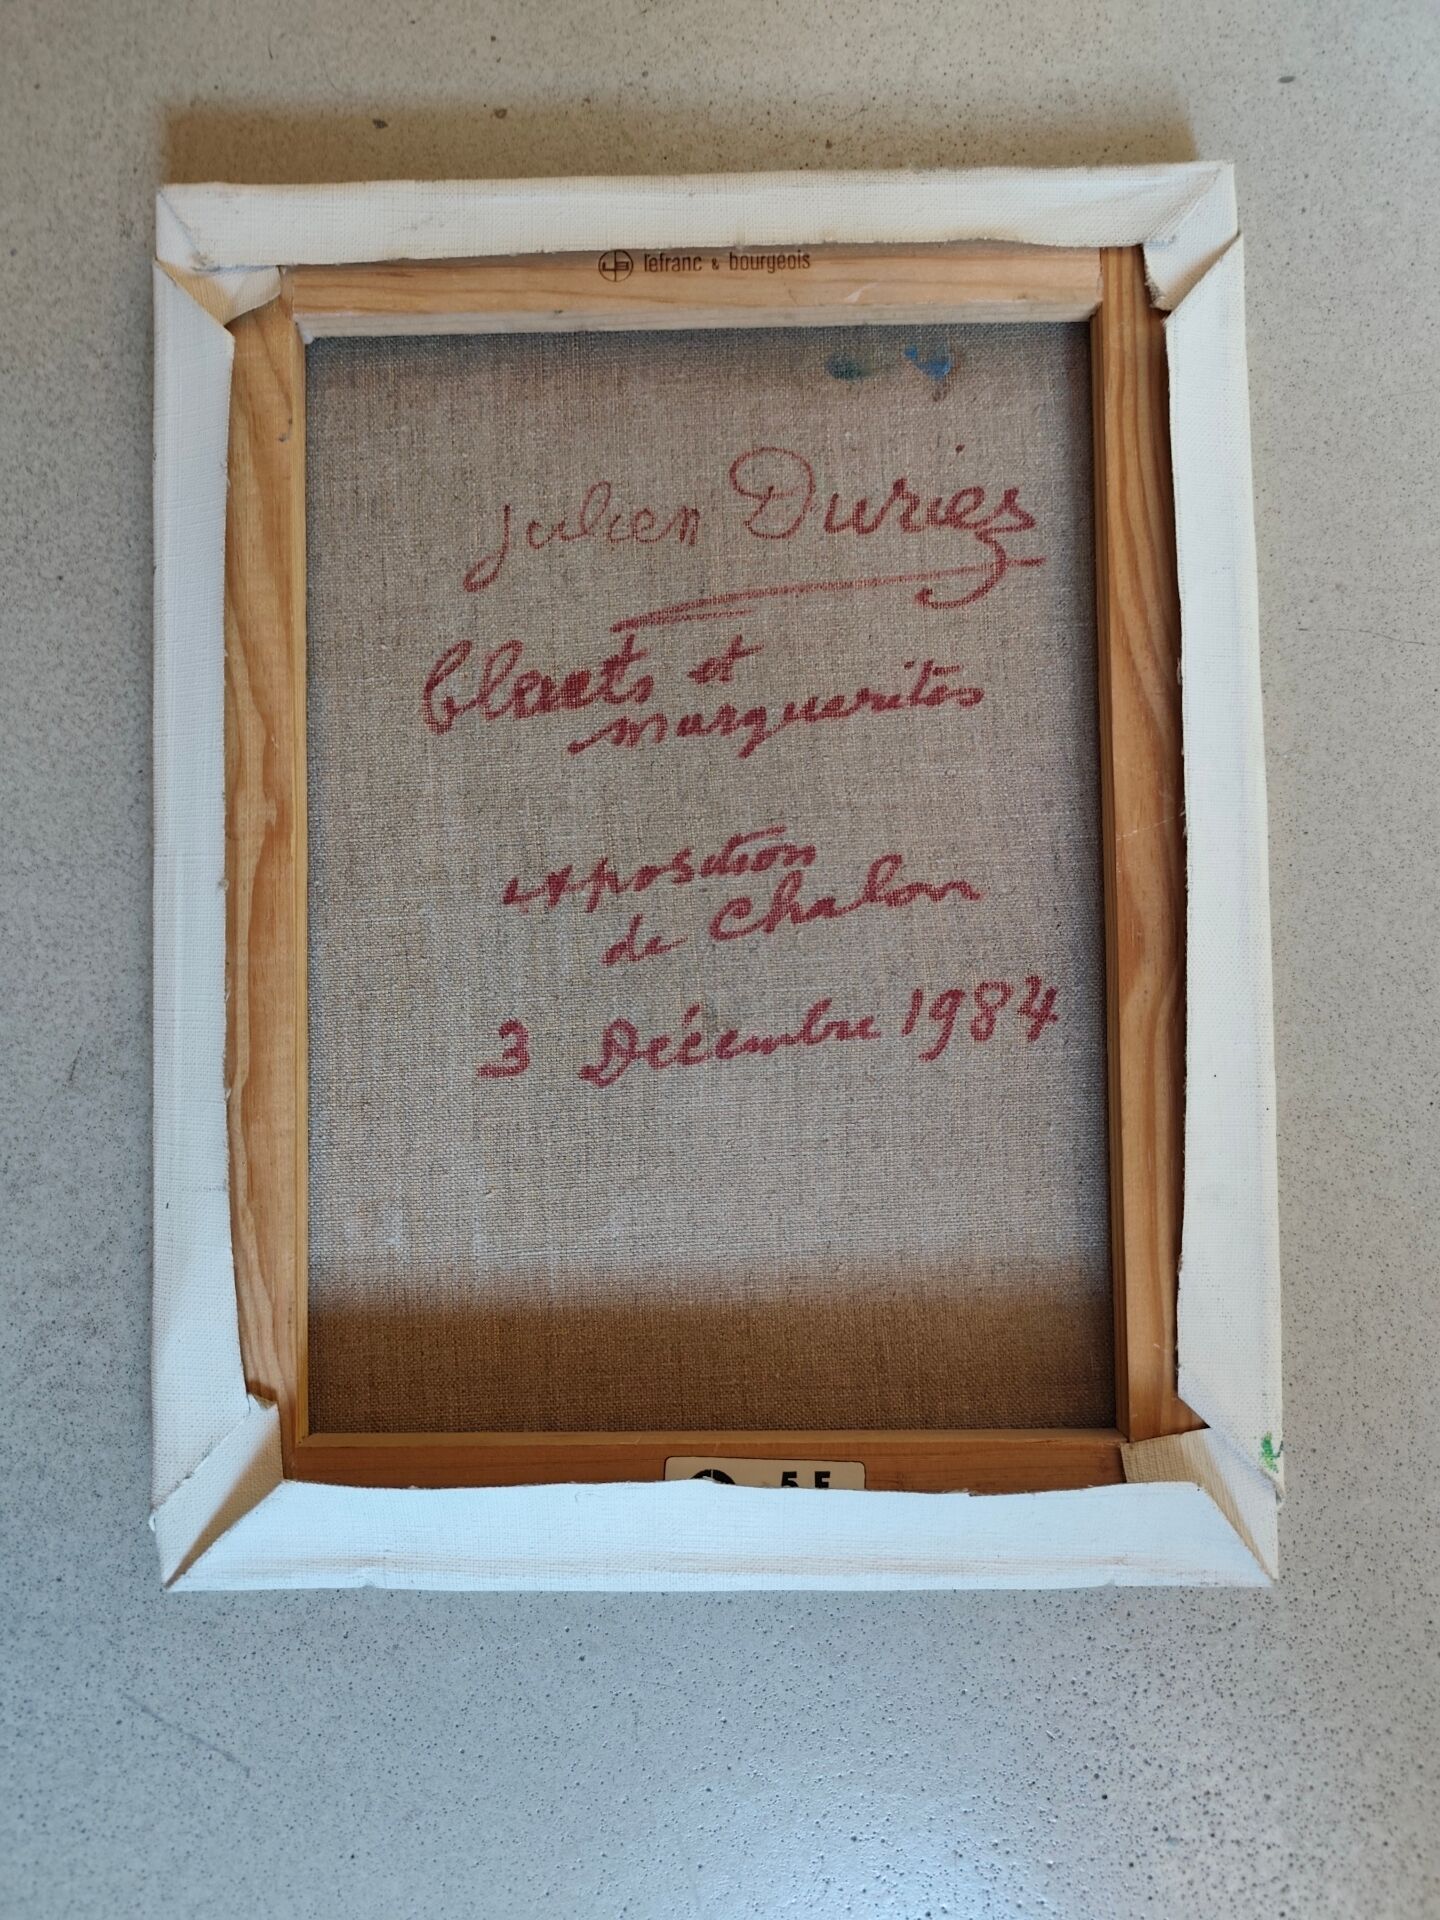 lefranc & bourgeois
Julien Duriez
bluets et
marguerites
exposition
de Chalon
3 Décembre 1984
5 F